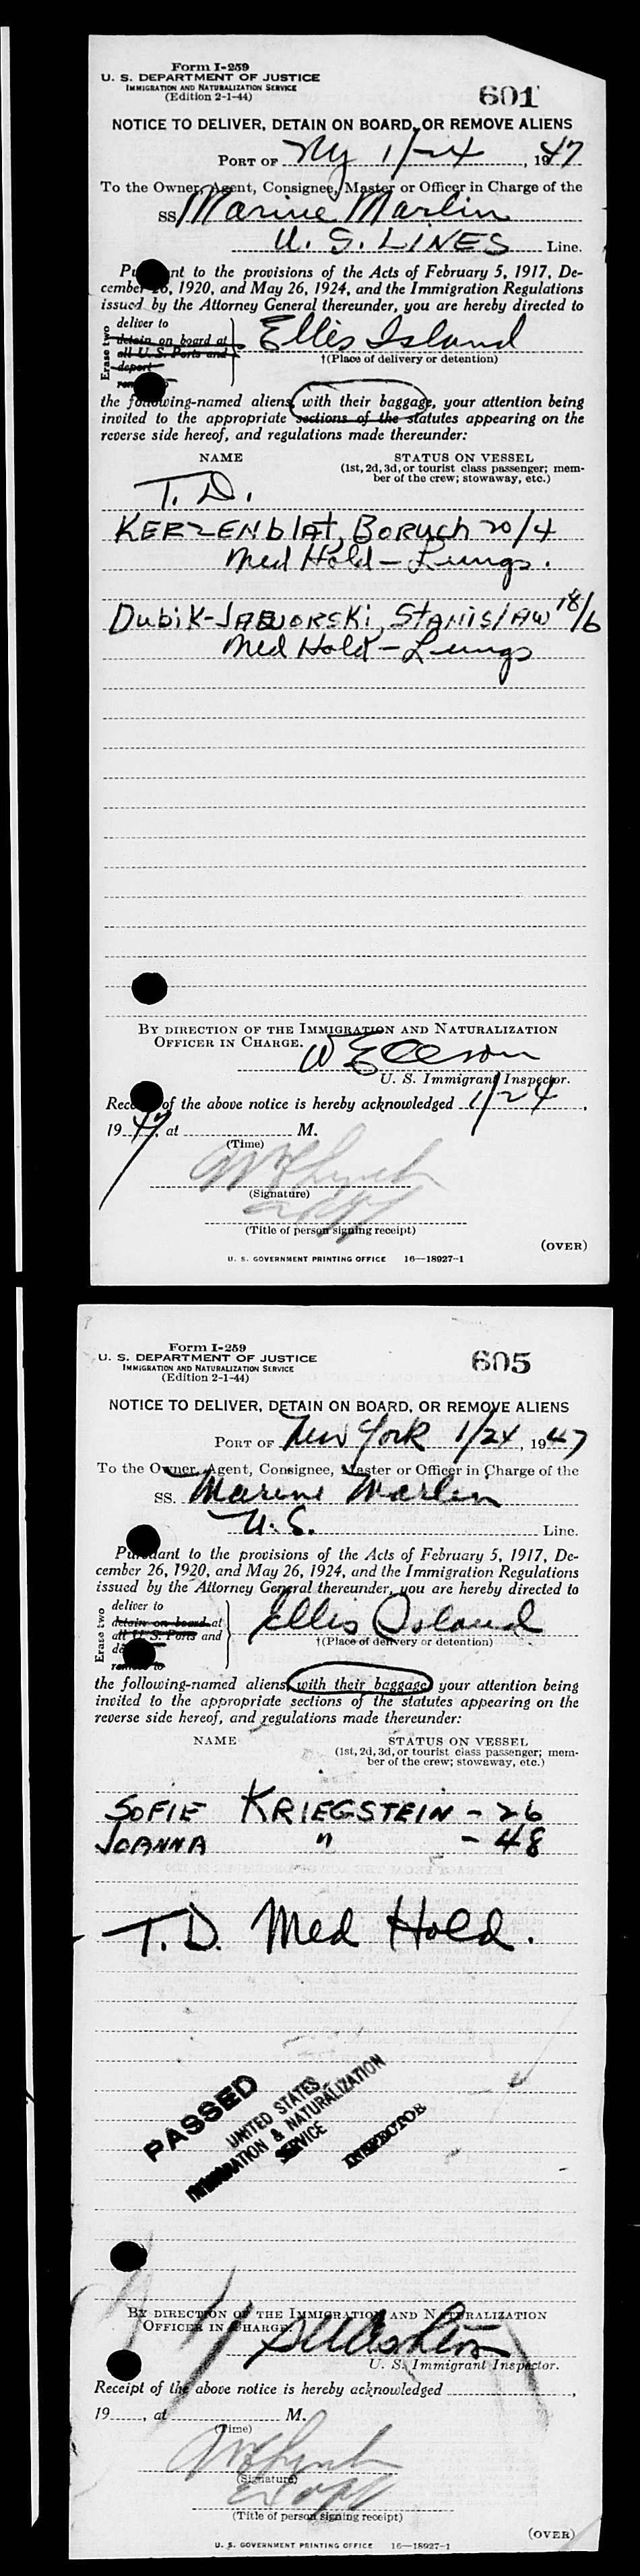 Form I-259
U. S. DEPARTMENT OF JUSTICE
IMMIGRATION AND NATURALIZATION SERVICE
(Edition 2-1-44)
601
NOTICE TO DELIVER, DETAIN ON BOARD, OR REMOVE ALIENS
PORT OF NY 1/24, 1947
To the Owner, Agent, Consignee, Master or Officer in Charge of the
SS Marine Marlin
U. S. LINES Line.
nt to the provisions of the Acts of February 5, 1917, De-
cember 26, 1920, and May 26, 1924, and the Immigration Regulations
issued by the Attorney General thereunder, you are hereby directed to
Erase two
deliver to
detain on board at
all U. S. Ports and
deport
Ellis Island
†(Place of delivery or detention)
the following-named aliens, with their baggage, your attention being
invited to the appropriate sections of the statutes appearing on the
reverse side hereof, and regulations made thereunder:
NAME STATUS ON VESSEL
(1st, 2d, 3d, or tourist class passenger; mem-
ber of the crew; stowaway, etc.)
T. D.
KERZENblat, Boruch 20/4
Med Hold - Lungs.
Dubik-JAWORSKi, STANISłAW 18/6
Med Hold - Lungs
BY DIRECTION OF THE IMMIGRATION AND NATURALIZATION
OFFICER IN CHARGE.
U. S. Immigrant Inspector.
of the above notice is hereby acknowledged 1/24,
1947, at M.
(Time)
(Signature)
(Title of person signing receipt)
(OVER)
U. S. GOVERNMENT PRINTING OFFICE 16—18927-1
Form I-259
U. S. DEPARTMENT OF JUSTICE
IMMIGRATION AND NATURALIZATION SERVICE
(Edition 2-1-44)
605
NOTICE TO DELIVER, DETAIN ON BOARD, OR REMOVE ALIENS
PORT OF New York 1/24, 1947
To the Owner, Agent, Consignee, Master or Officer in Charge of the
SS. Marine Marlin
U.S. Line.
Pursuant to the provisions of the Acts of February 5, 1917, De-
cember 26, 1920, and May 26, 1924, and the Immigration Regulations
issued by the Attorney General thereunder, you are hereby directed to
Erase two
deliver to
detain on board at
all U. S. Ports and
remove to
Ellis Island
†(Place of delivery or detention)
the following-named aliens, with their baggage, your attention being
invited to the appropriate sections of the statutes appearing on the
reverse side hereof, and regulations made thereunder:
NAME STATUS ON VESSEL
(1st, 2d, 3d, or tourist class passenger; mem-
ber of the crew; stowaway, etc.)
SOFIE KRIEGSTEIN - 26
JOANNA " - 48
T. D. Med Hold.
PASSED
UNITED STATES
IMMIGRATION & NATURALIZATION
SERVICE
INSPECTOR
BY DIRECTION OF THE IMMIGRATION AND NATURALIZATION
OFFICER IN CHARGE.
U. S. Immigrant Inspector.
Receipt of the above notice is hereby acknowledged ,
19 , at M.
(Time)
(Signature)
(Title of person signing receipt)
(OVER)
U. S. GOVERNMENT PRINTING OFFICE 16—18927-1